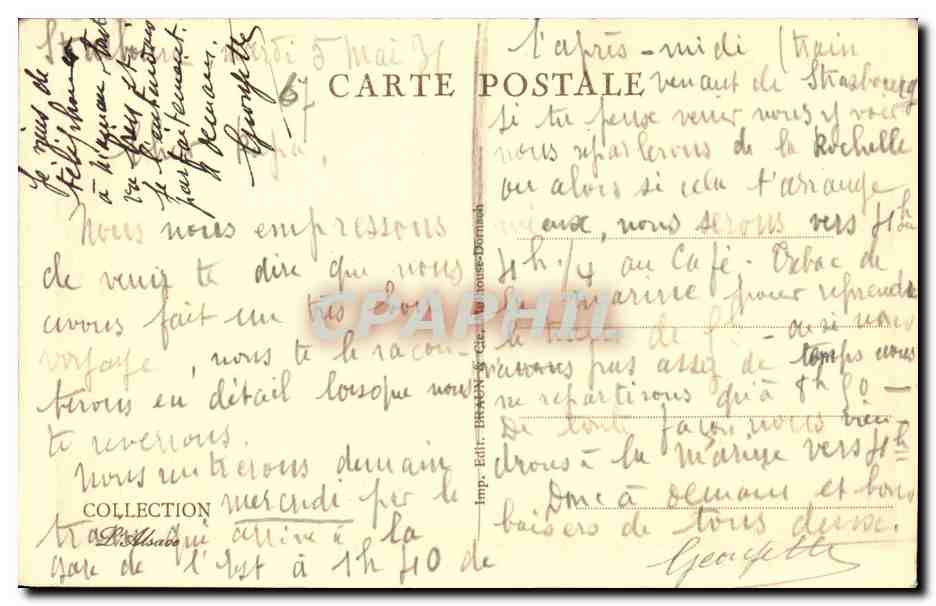 Strasbourg mardi 5 Mai 31
CARTE POSTALE
67
Je viens de
téléphoner
à maman tout
va bien et
je t'attendrons
parfaitement.
à demain.
Georgette
papa,
Nous nous empressons
de venir te dire que nous
avons fait un très bon
voyage, nous te le racon-
terons en détail lorsque nous
te reverrons.
Nous rentrerons demain
mercredi par le
train qui arrive à la
gare de l'Est à 1h 40 de
COLLECTION
L'Alsace
Imp. Edit. BRAUN & Cie, Mulhouse-Dornach
l'après-midi (train
venant de Strasbourg
si tu peux venir nous y voir
nous reparlerons de la Rochelle
ou alors si cela t'arrange
mieux, nous serons vers 4h
4h 1/4 au Café-Tabac de
la Mairie pour reprendre
le train de ou si nous
n'avons pas assez de temps nous
ne repartirons qu'à
De toute façon nous vien
drons à la mairie vers 4h
Donc à demain et bons
baisers de tous deux.
Georgette
CPAPHIL